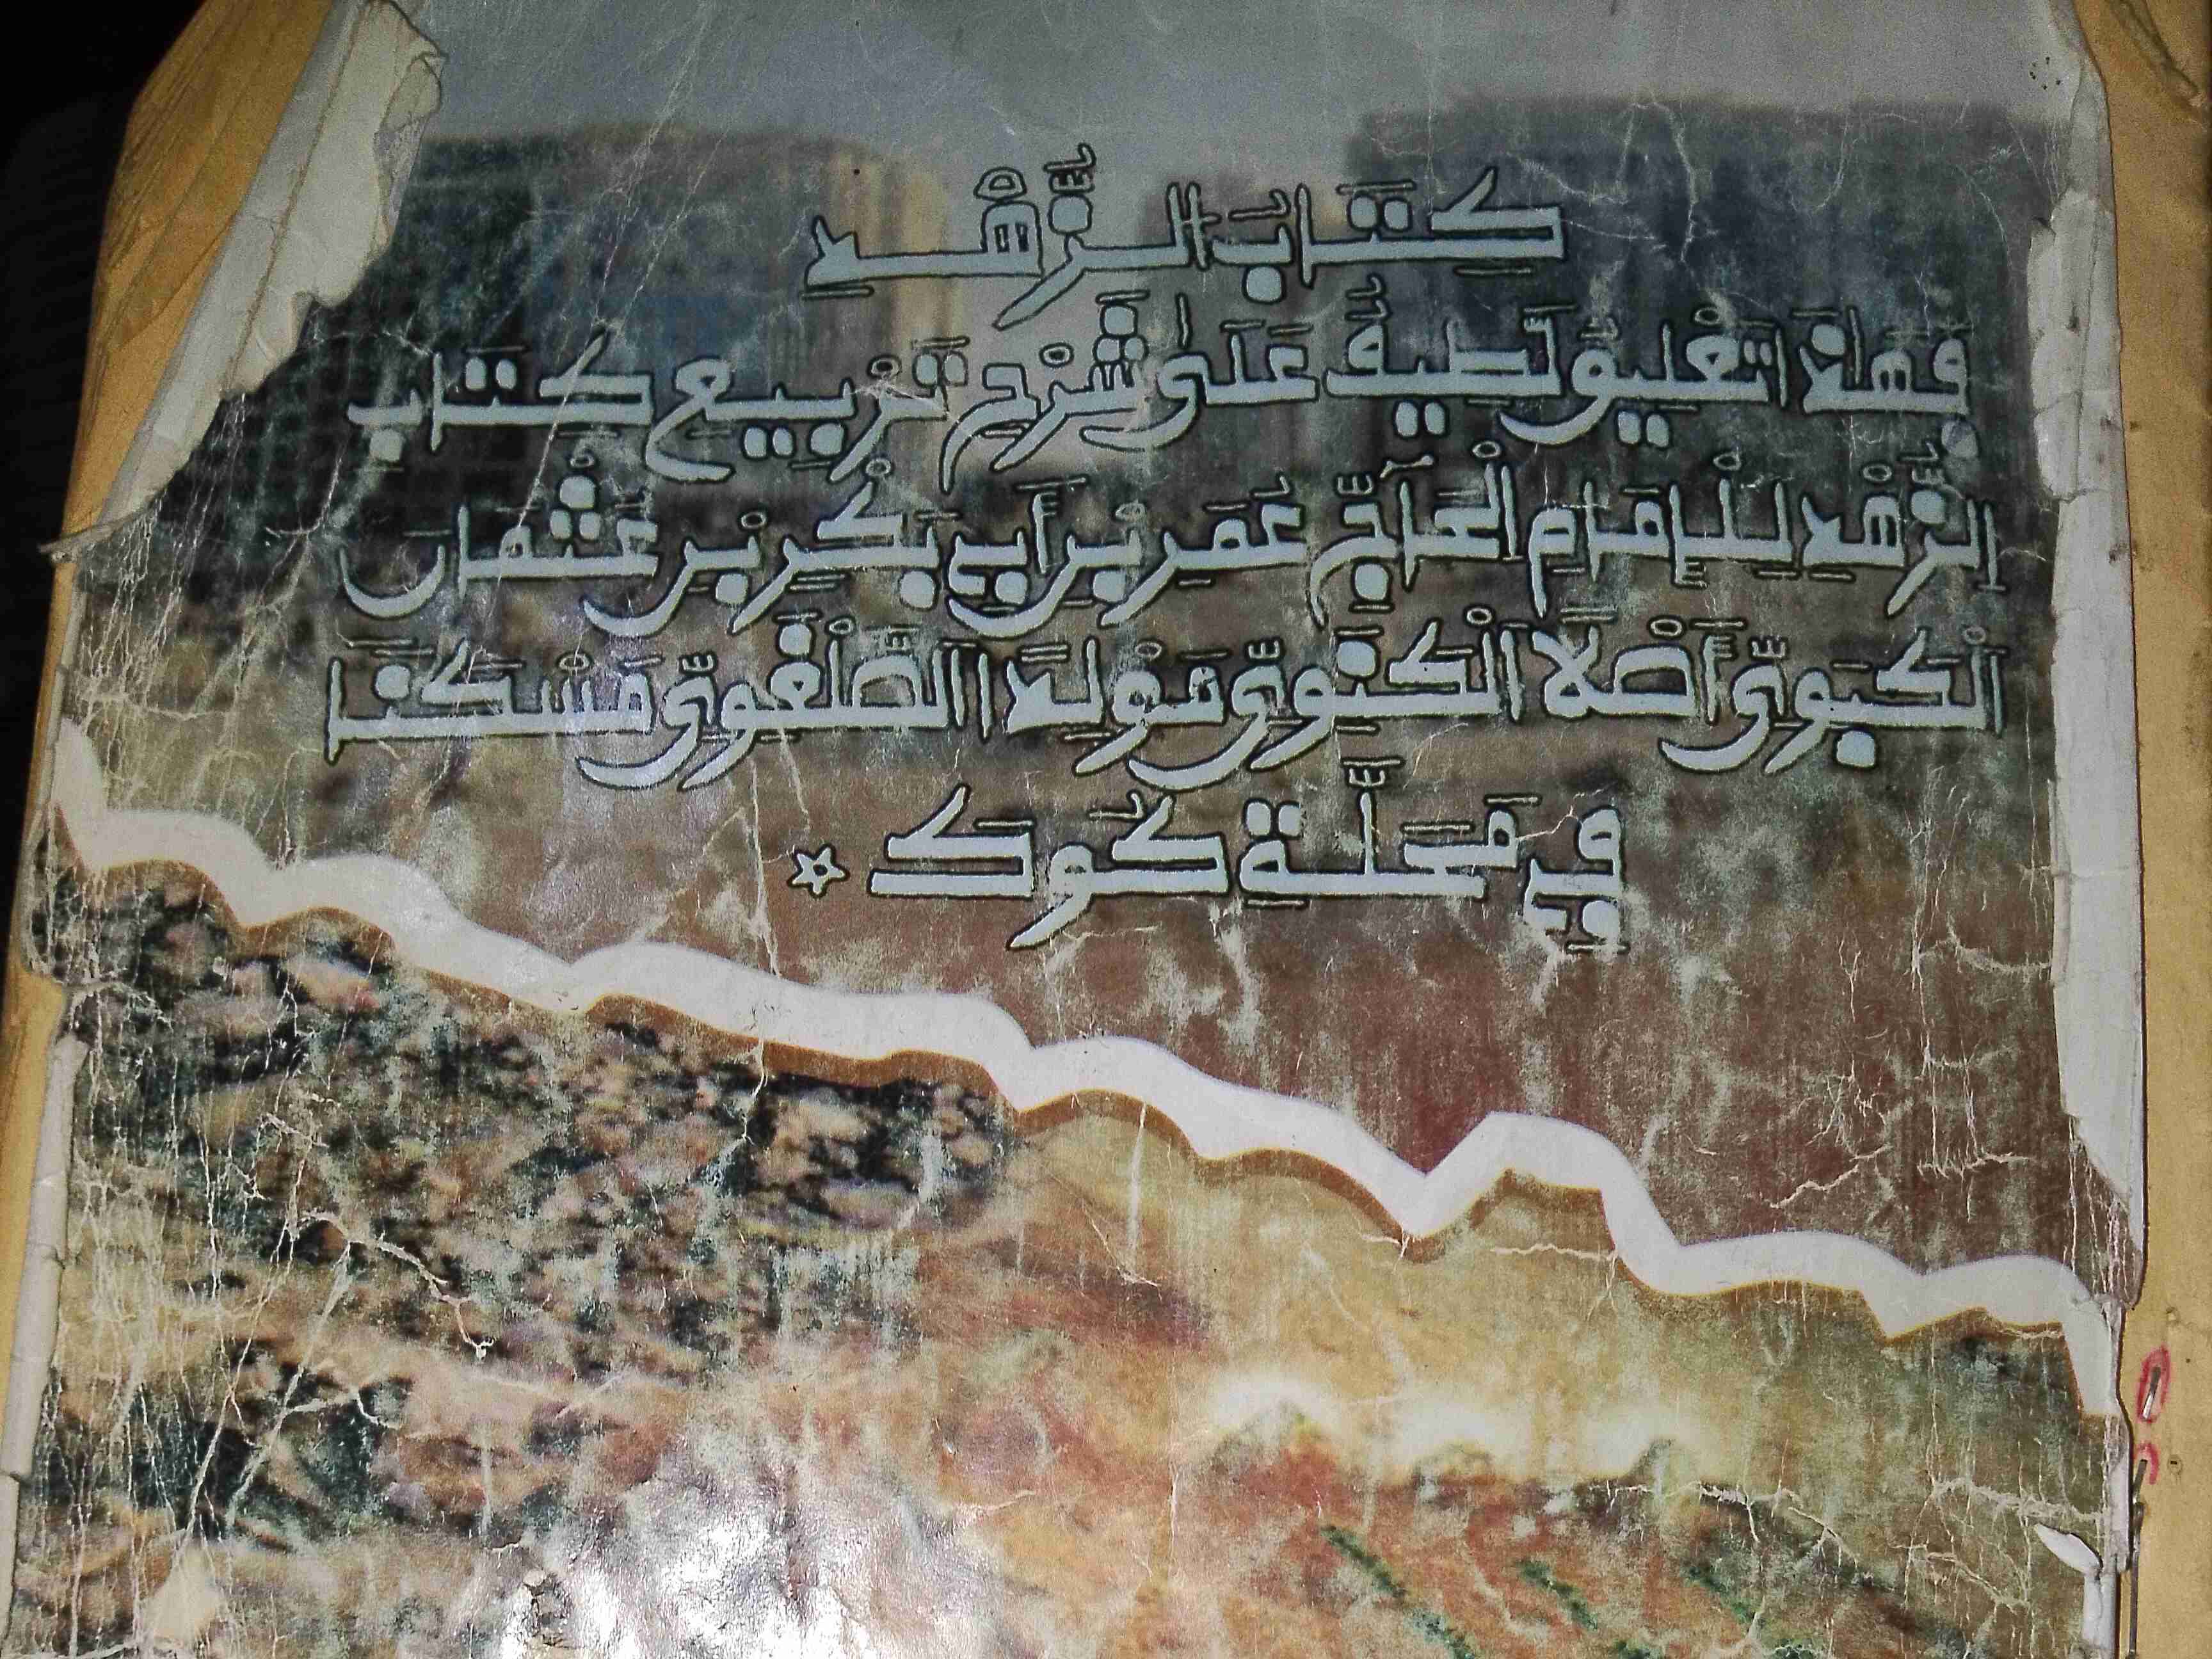 كِتَابَ الزُّهْدِ
فَهٰذَا تَعْلِيقٌ لَطِيفٌ عَلَىٰ شَرْحِ تَرْبِيعِ كِتَابِ
الزُّهْدِ لِلْإِمَامِ الْحَآجِّ عُمَرِ بْنِ أَبِي بَكْرِ بْنِ عُثْمَانَ
الْكَبَوِيِّ أَصْلًا الْكَنَوِيِّ مَوْلِدًا الصَّلْغَوِيِّ مَسْكَنًا
فِي مَحَلَّةِ كُوكَ